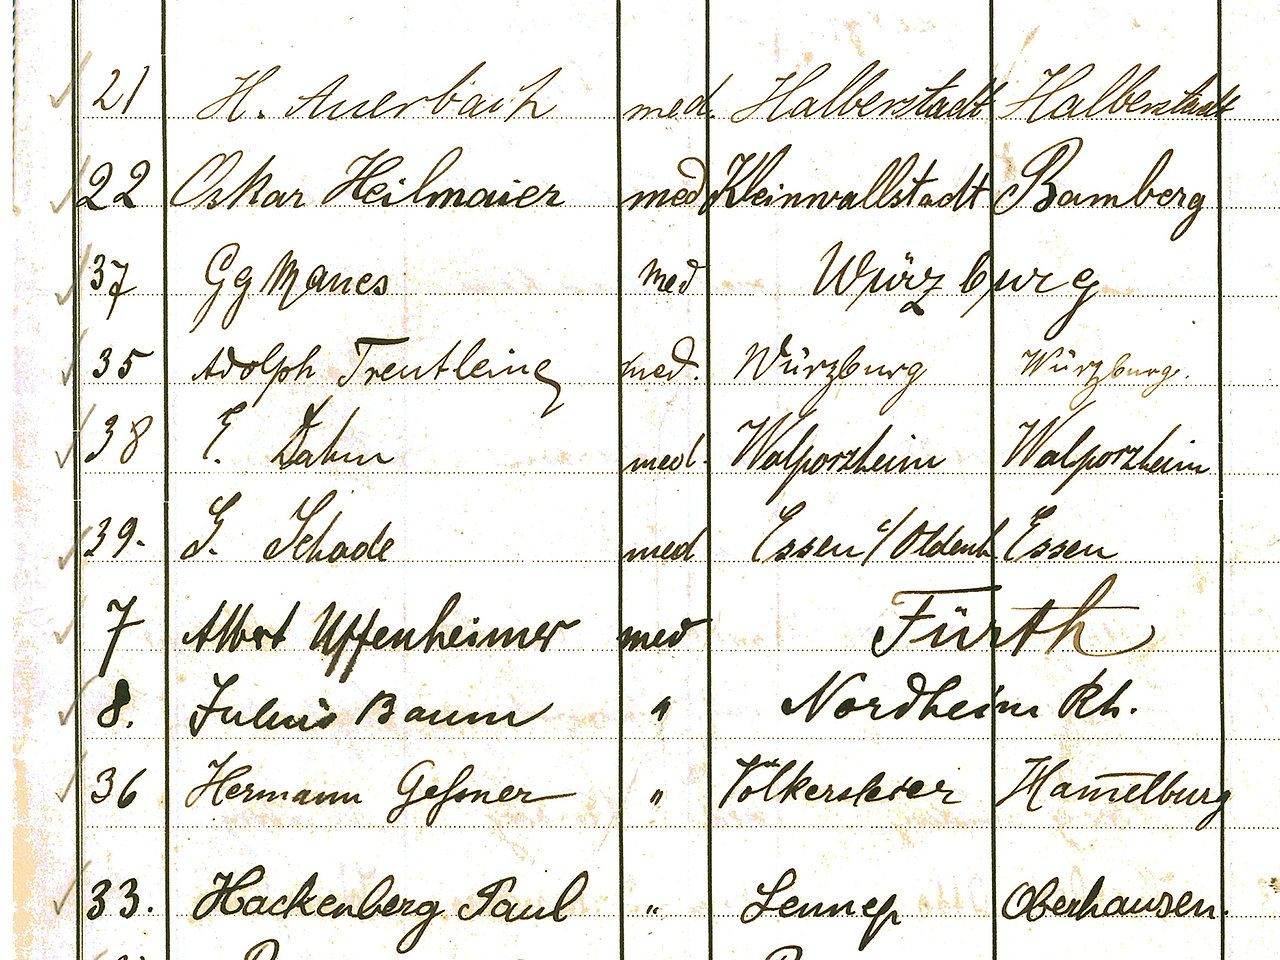 21 H. Auerbach med. Halberstadt Halberstadt
22 Oskar Heilmaier med Kleinwallstadt Bamberg
37 Gg Manes med Würzburg
35 Adolph Trentlein med. Würzburg Würzburg.
38 E. Dahm med. Walporzheim Walporzheim
39. G. Schade med Essen i/Oldenb. Essen
7 Albert Uffenheimer med Fürth
8. Julius Baum " Nordheim Rh.
36 Hermann Geßner " Völkersleier Hamelburg
33. Hackenberg Paul " Lennep Oberhausen.